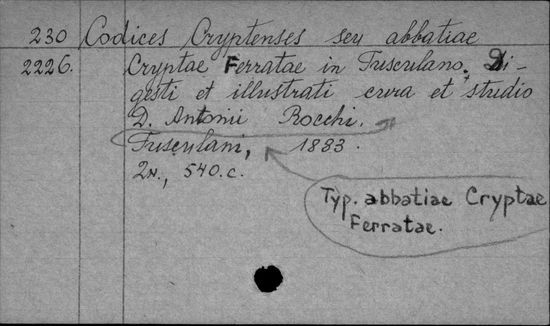 230 Codices Cryptenses seu abbatiae
2226. Cryptae Ferratae in Tusculano, Di-
gesti et illustrati cura et studio
D. Antonii Rocchi.
Tusculani, 1883.
2н., 540.c.
Typ. abbatiae Cryptae
Ferratae.